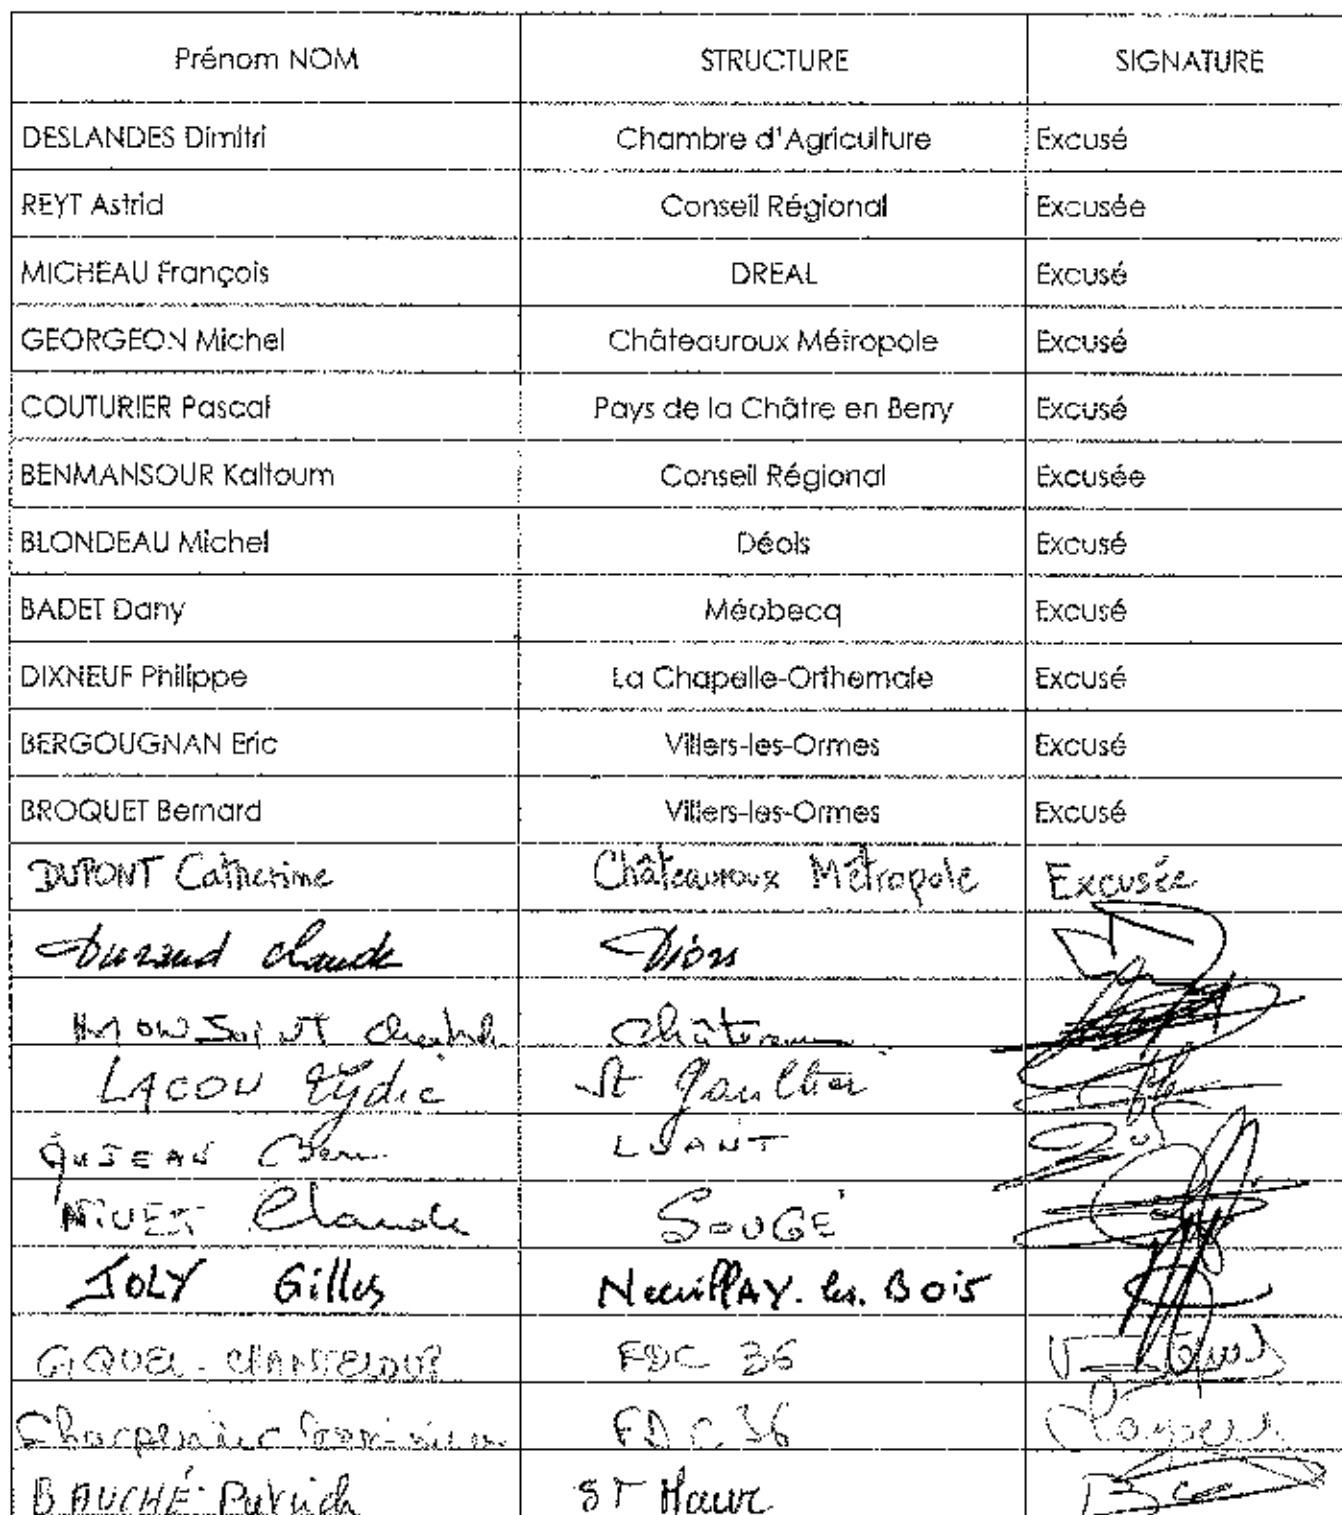 Prénom NOM STRUCTURE SIGNATURE
DESLANDES Dimitri Chambre d'Agriculture Excusé
REYT Astrid Conseil Régional Excusée
MICHEAU François DREAL Excusé
GEORGEON Michel Châteauroux Métropole Excusé
COUTURIER Pascal Pays de la Châtre en Berry Excusé
BENMANSOUR Kaltoum Conseil Régional Excusée
BLONDEAU Michel Déols Excusé
BADET Dany Méobecq Excusé
DIXNEUF Philippe La Chapelle-Orthemale Excusé
BERGOUGNAN Eric Villers-les-Ormes Excusé
BROQUET Bernard Villers-les-Ormes Excusé
DUPONT Catherine Châteauroux Métropole Excusée
Durand Claude Diors
LACOU Lydie St Gaultier
LUANT
NIVET Claude SOUGÉ
JOLY Gilles Neuillay. les. Bois
GIQUEL-CHANTELOUP FDC 36
Charpentier FDC 36
BAUCHÉ Patrick ST Maur